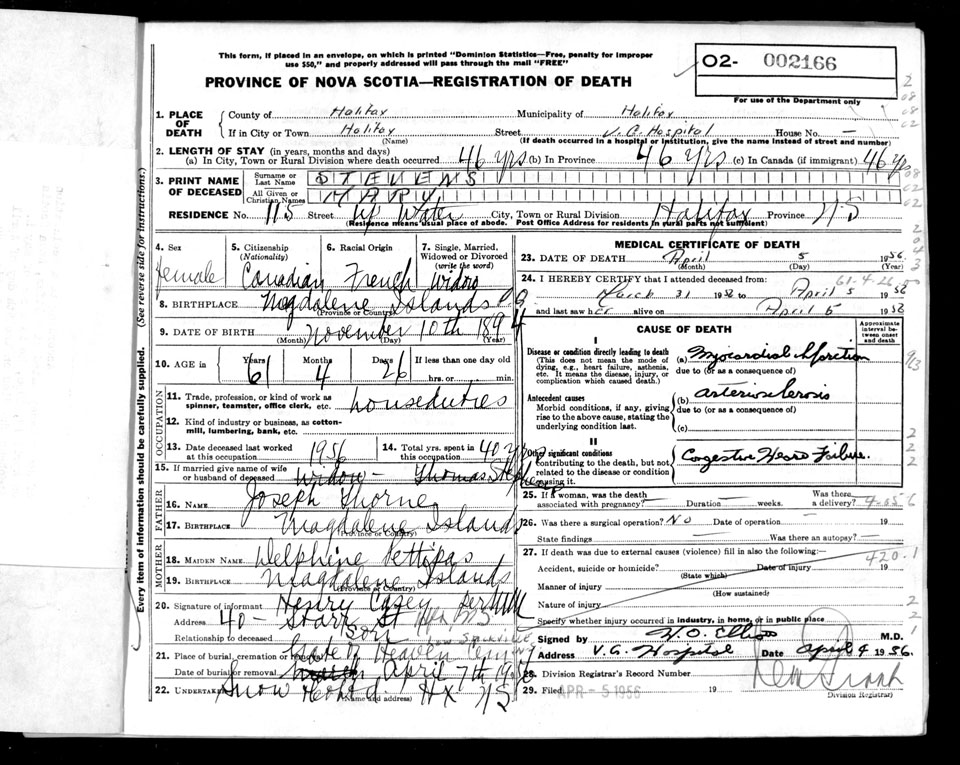 This form, if placed in an envelope, on which is printed "Dominion Statistics—Free, penalty for improper
use $50," and properly addressed will pass through the mail "FREE"
PROVINCE OF NOVA SCOTIA—REGISTRATION OF DEATH
O2- 002166
For use of the Department only
1. PLACE OF DEATH
County of Halifax Municipality of Halifax
If in City or Town Halifax Street V. G. Hospital House No. —
(Name) (If death occurred in a hospital or institution, give the name instead of street and number)
2. LENGTH OF STAY (in years, months and days)
(a) In City, Town or Rural Division where death occurred 46 yrs (b) In Province 46 yrs (c) In Canada (if immigrant) 46 yrs
3. PRINT NAME OF DECEASED
Surname or Last Name STEVENS
All Given or Christian Names MARY
RESIDENCE No. 115 Street Up Water City, Town or Rural Division Halifax Province N S
(Residence means usual place of abode. Post Office Address for residents in rural parts not sufficient)
4. Sex
female
5. Citizenship
(Nationality)
Canadian
6. Racial Origin
French
7. Single, Married, Widowed or Divorced
(write the word)
Widow
8. BIRTHPLACE Magdalene Islands P.Q.
(Province or Country)
9. DATE OF BIRTH November 10th 1894
(Month) (Day)
10. AGE in
Years 61
Months 4
Days 26
If less than one day old
hrs. or min.
OCCUPATION
11. Trade, profession, or kind of work as
spinner, teamster, office clerk, etc. houseduties
12. Kind of industry or business, as cotton-
mill, lumbering, bank, etc.
13. Date deceased last worked
at this occupation 1956
14. Total yrs. spent in
this occupation 40 yrs
15. If married give name of wife
or husband of deceased Widow - Thomas
FATHER
16. NAME Joseph Thorne
17. BIRTHPLACE Magdalene Islands
(Province or Country)
MOTHER
18. MAIDEN NAME Delphine Pettipas
19. BIRTHPLACE Magdalene Islands
(Province or Country)
20. Signature of informant Henry Casey
Address 40 - Starr St
Relationship to deceased Son
21. Place of burial, cremation or removal Gate of Heaven Cem
Date of burial or removal April 7th 1956
22. UNDERTAKER Snow Hx N S
(Name and address)
MEDICAL CERTIFICATE OF DEATH
23. DATE OF DEATH April 5 1956
(Month) (Day) (Year)
24. I HEREBY CERTIFY that I attended deceased from:
March 31 1956 to April 5 1956
and last saw her alive on April 5 1956
CAUSE OF DEATH
Approximate interval between onset and death
I
Disease or condition directly leading to death
(This does not mean the mode of
dying, e.g., heart failure, asthenia,
etc. It means the disease, injury, or
complication which caused death.)
(a) Myocardial Infarction
due to (or as a consequence of)
Antecedent causes
Morbid conditions, if any, giving
rise to the above cause, stating the
underlying condition last.
(b) arteriosclerosis
due to (or as a consequence of)
(c)
II
Other significant conditions
contributing to the death, but not
related to the disease or condition
causing it.
Congestive Heart Failure.
25. If a woman, was the death
associated with pregnancy? — Duration — weeks. Was there
a delivery?
26. Was there a surgical operation? No Date of operation — 19
State findings — Was there an autopsy? —
27. If death was due to external causes (violence) fill in also the following:—
420.1
Accident, suicide or homicide? Date of injury 19
(State which)
Manner of injury
(How sustained)
Nature of injury
Specify whether injury occurred in industry, in home, or in public place
Signed by W. O. Elliot M.D.
Address V. G. Hospital Date April 4 1956.
28. Division Registrar's Record Number
29. Filed APR - 5 1956 19
Division Registrar)
Every item of information should be carefully supplied. (See reverse side for instructions.)